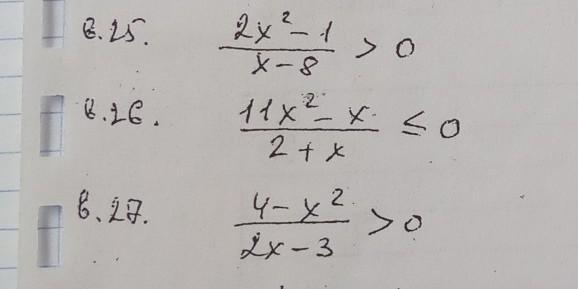 в.25. (2x² - 1)/(x - 8) > 0
в.26. (11x² - x)/(2 + x) ≤ 0
в.27. (4 - x²)/(2x - 3) > 0